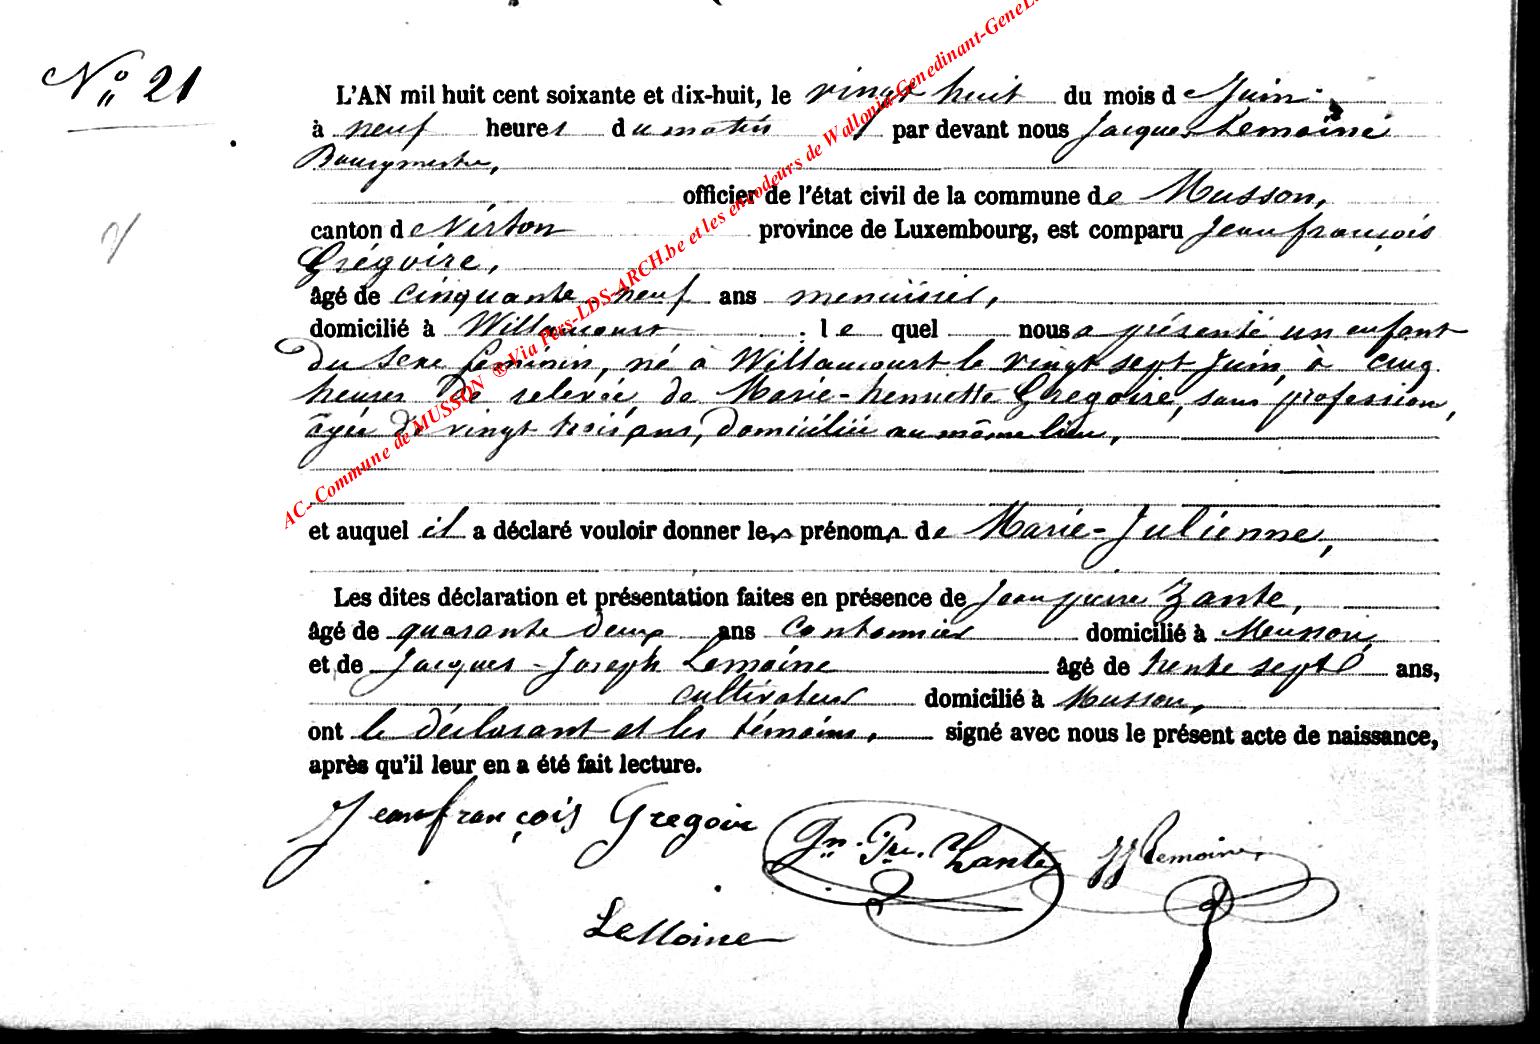 N° 21
L'AN mil huit cent soixante et dix-huit, le vingt huit du mois de Juin
à neuf heures du matin, par devant nous Jacques Lemoine
Bourgmestre,
officier de l'état civil de la commune de Musson,
canton de Virton province de Luxembourg, est comparu Jean françois
Grégoire,
âgé de cinquante neuf ans menuisier,
domicilié à Willancourt ; le quel nous a présenté un enfant
du sexe féminin, né à Willancourt le vingt sept Juin, à cinq
heures de relevée, de Marie-henriette Gregoire, sans profession,
âgée de vingt trois ans, domiciliée au même lieu,
et auquel il a déclaré vouloir donner les prénoms de Marie-Julienne,
Les dites déclaration et présentation faites en présence de Jean pierre Zante,
âgé de quarante deux ans Cantonnier domicilié à Musson,
et de Jacques-Joseph Lemoine âgé de trente sept ans,
cultivateur domicilié à Musson,
ont le déclarant et les témoins, signé avec nous le présent acte de naissance,
après qu'il leur en a été fait lecture.
Jean françois Gregoire Jn. Pre. Zante JJ Lemoine
LeMoine
AC- Commune de MUSSON ® Via Pers-LDS-ARCH.be et les encodeurs de Wallonia-Genedinant-GeneL